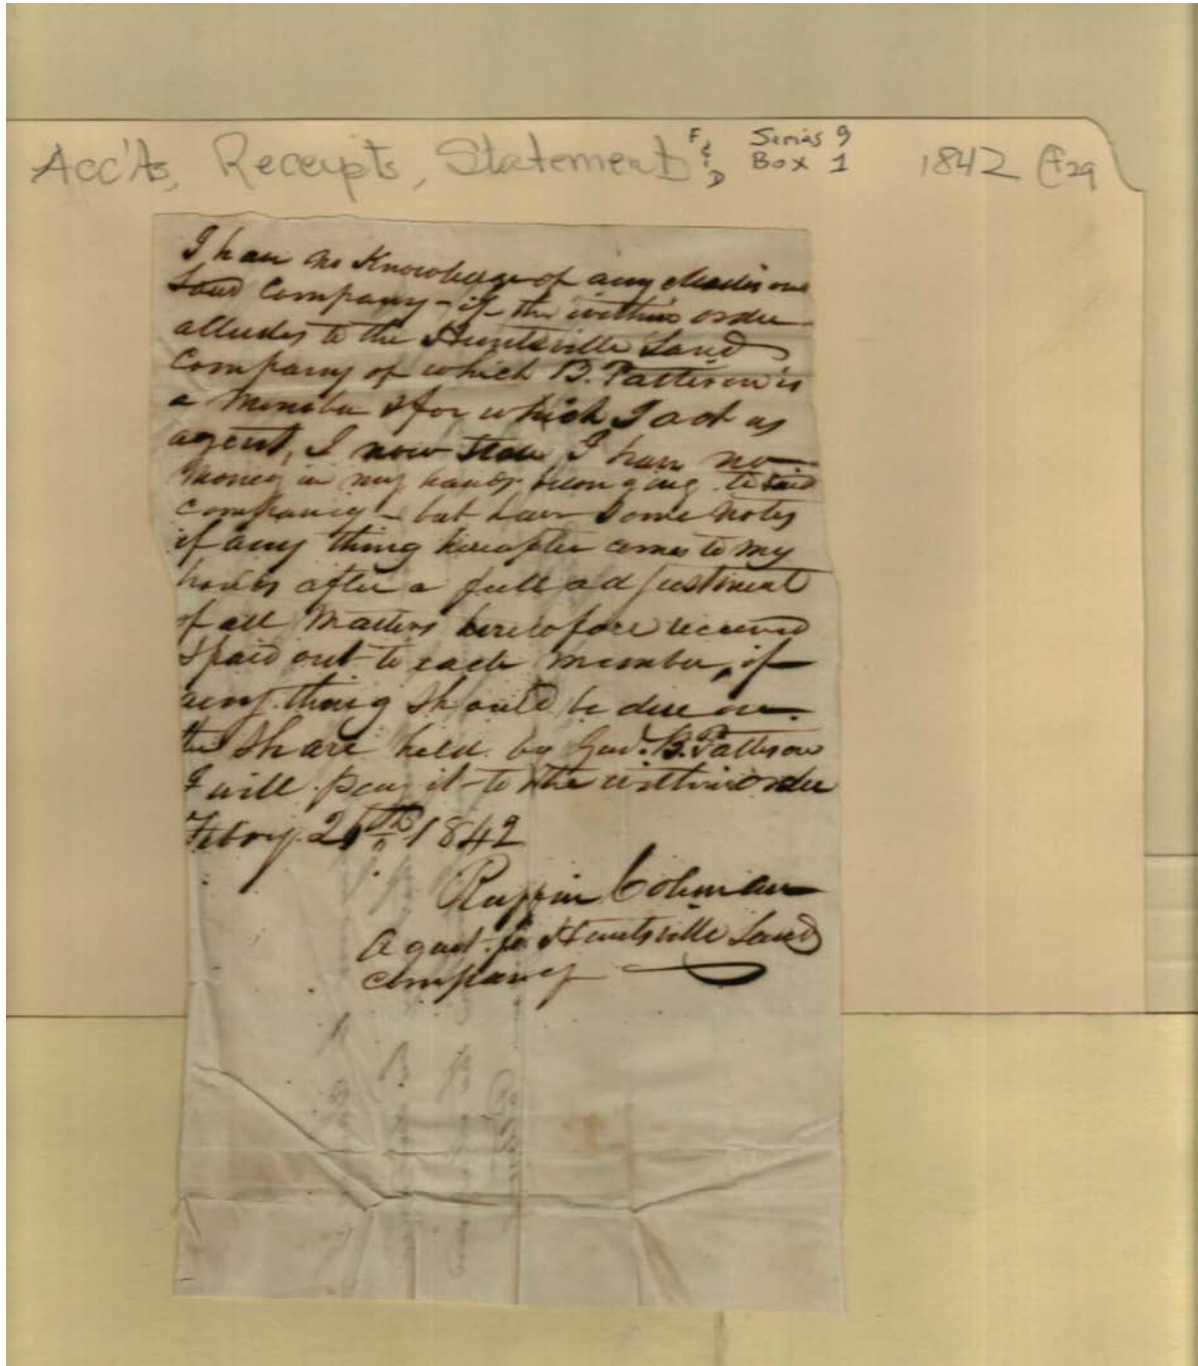 Acc'ts, Receipts, Statements F & D Series 9 Box 1 1842 F29
I have no Knowledge of any Madison
Land Company - if the within order
alludes to the Huntsville Land
Company of which B. Patteson is
a Member & for which I act as
agent, I now state I have no
Money in my hands belonging to said
Company - but have some notes
if any thing hereafter comes to my
hands after a full adjustment
of all Matters heretofore received
& paid out to each member, if
any thing should be due on
the Share held by Genl. B. Patteson
I will pay it to the within order
Febry. 25th 1842
Ruffin Coleman
Agent for Huntsville Land
Company